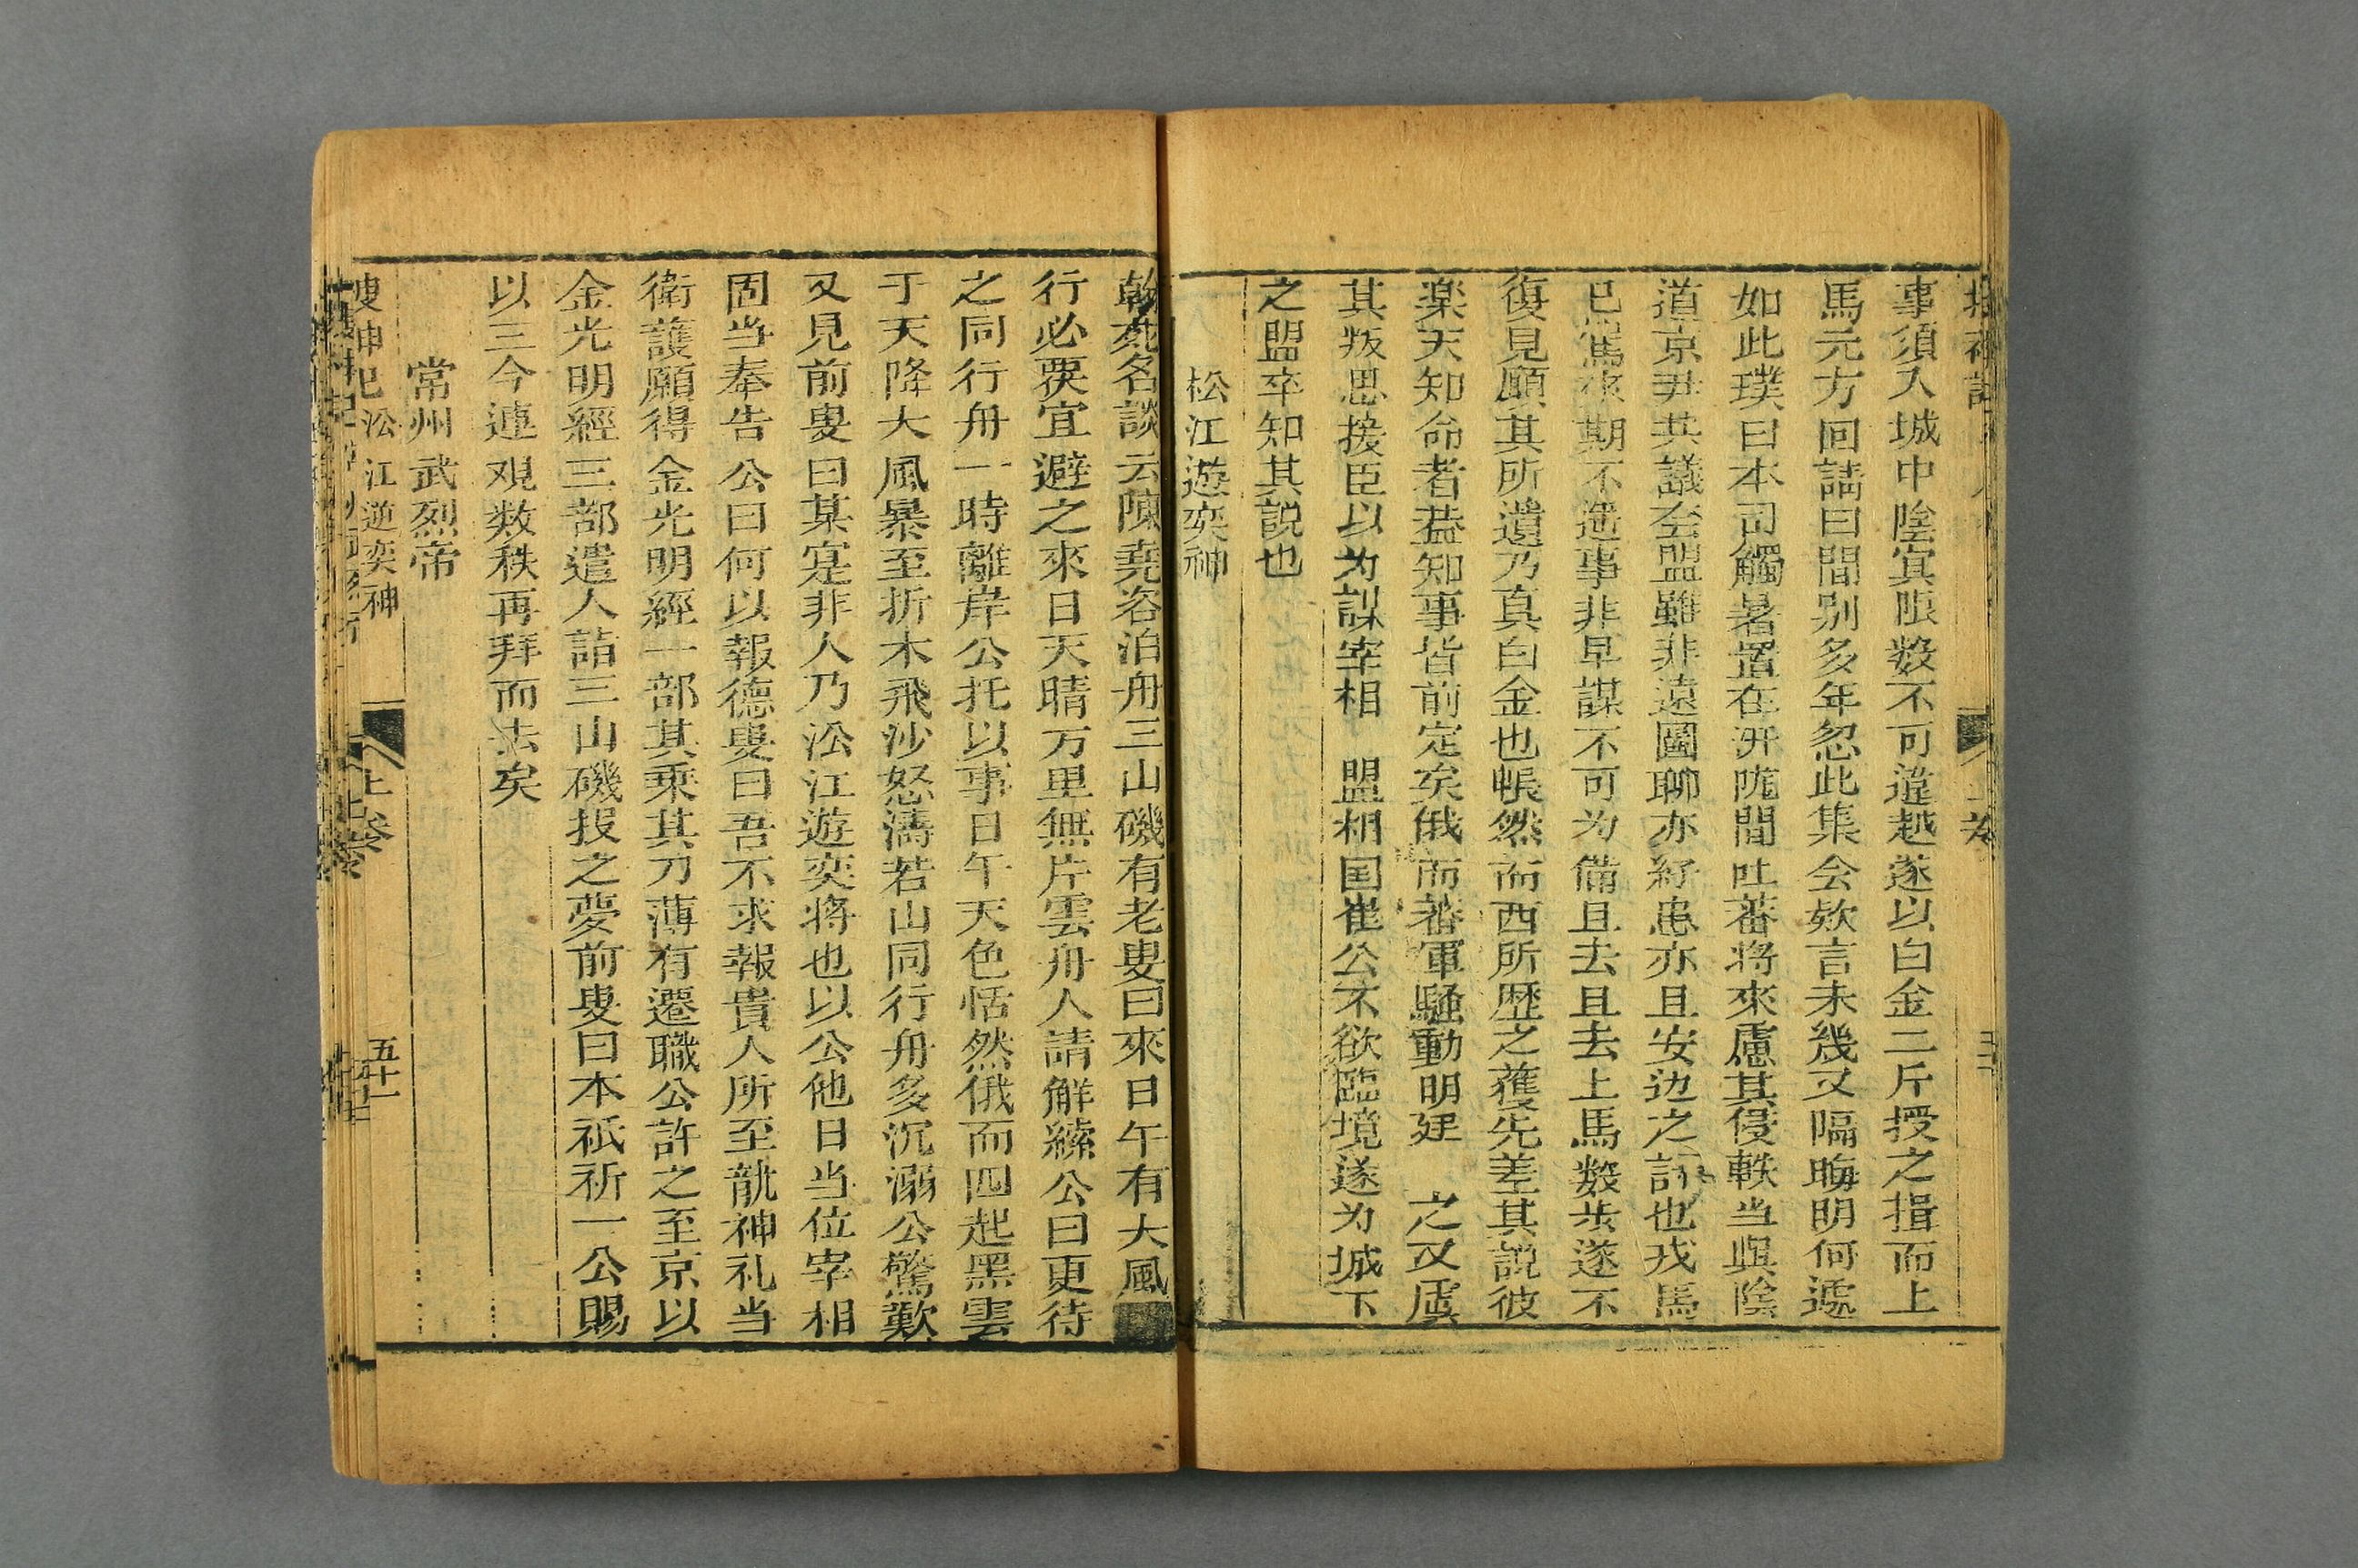 事須入城中陰冥限数不可違越遂以白金二斤授之揖而上
馬元方回請曰間别多年忽此集会欵言未幾又隔晦明何遽
如此璞曰本司觸暑置在汧隴間吐蕃将來慮其侵軼当與陰
道京尹共議至盟雖非遠圖聊亦紓患亦且安边之計也戎馬
已駕來期不遥事非早謀不可为備且去且去上馬数步遂不
復見顧其所遺乃真白金也悵然而西所歴之獲先差其説彼
楽天知命者葢知事皆前定矣俄而蕃軍騒動明廷 之又虞
其叛思援臣以为謀宰相 盟相囯崔公不欲臨境遂为城下
之盟卒知其説也
松江遊奕神
乾苑名談云陳堯咨泊舟三山磯有老叟曰來日午有大風
行必覆宜避之來日天晴万里無片雲舟人請解纜公曰更待
之同行舟一時離岸公托以事日午天色恬然俄而四起黑雲
于天降大風暴至折木飛沙怒濤若山同行舟多沉溺公驚歎
又見前叟曰某寔非人乃松江遊奕将也以公他日当位宰相
固当奉告公曰何以報德叟曰吾不求報貴人所至龍神礼当
衛護願得金光明經一部其乘其刀薄有遷職公許之至京以
金光明經三部遣人詣三山磯投之夢前叟曰本祇祈一公賜
以三今連观数秩再拜而去矣
常州武烈帝
搜神記 松江遊奕神 上卷 五十一